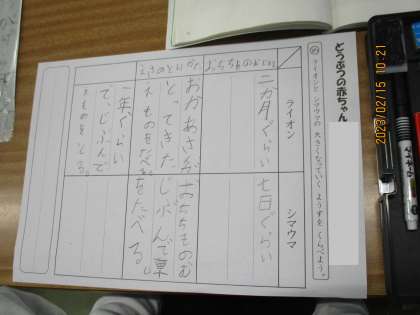 どうぶつの赤ちゃん
ライオンと シマウマの 大きくなっていく ようすを くらべよう。
ライオン
シマウマ
二か月ぐらい
七日ぐらい
おかあさんが
とってきた
えものをたべる
一年ぐらい
で、じぶんで
えものをとる。
おちちものむ
じぶんで草
をたべる。
2023/02/15 10:21